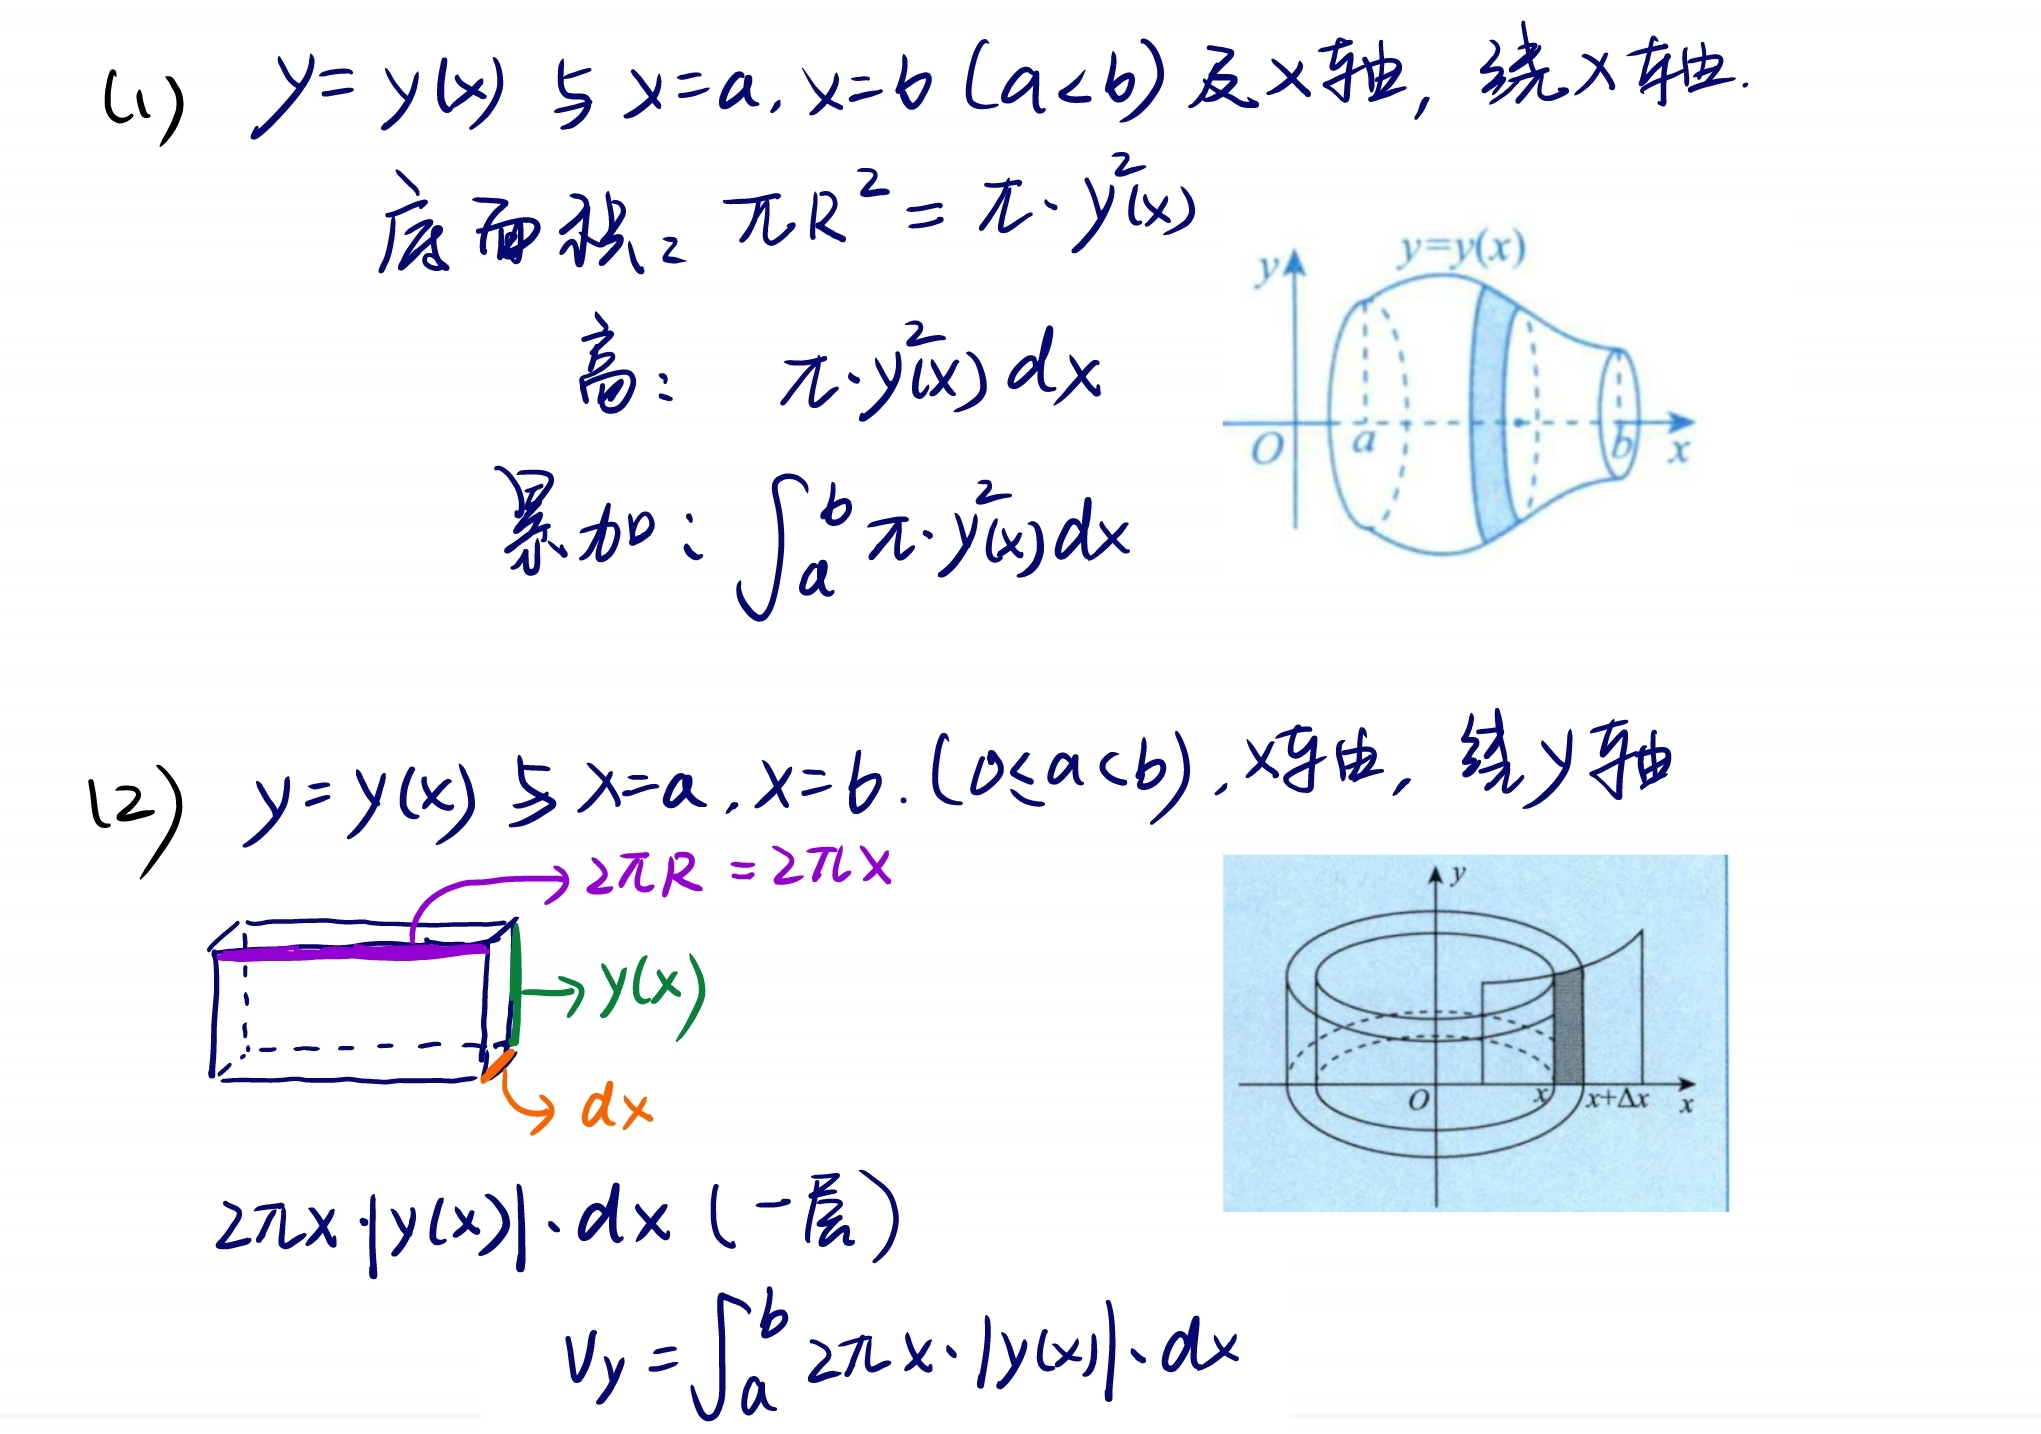 (1) y = y(x) 与 x=a, x=b (a<b) 及 x 轴, 绕 x 轴.
底面积: πR² = π·y²(x)
高: π·y²(x) dx
累加: ∫ₐᵇ π·y²(x) dx
y
y=y(x)
O a b x
(2) y = y(x) 与 x=a, x=b. (0≤a<b), x轴, 绕 y 轴
2πR = 2πx
y(x)
dx
y
O x x+Δx x
2πx·|y(x)|·dx (一层)
Vy = ∫ₐᵇ 2πx·|y(x)|·dx